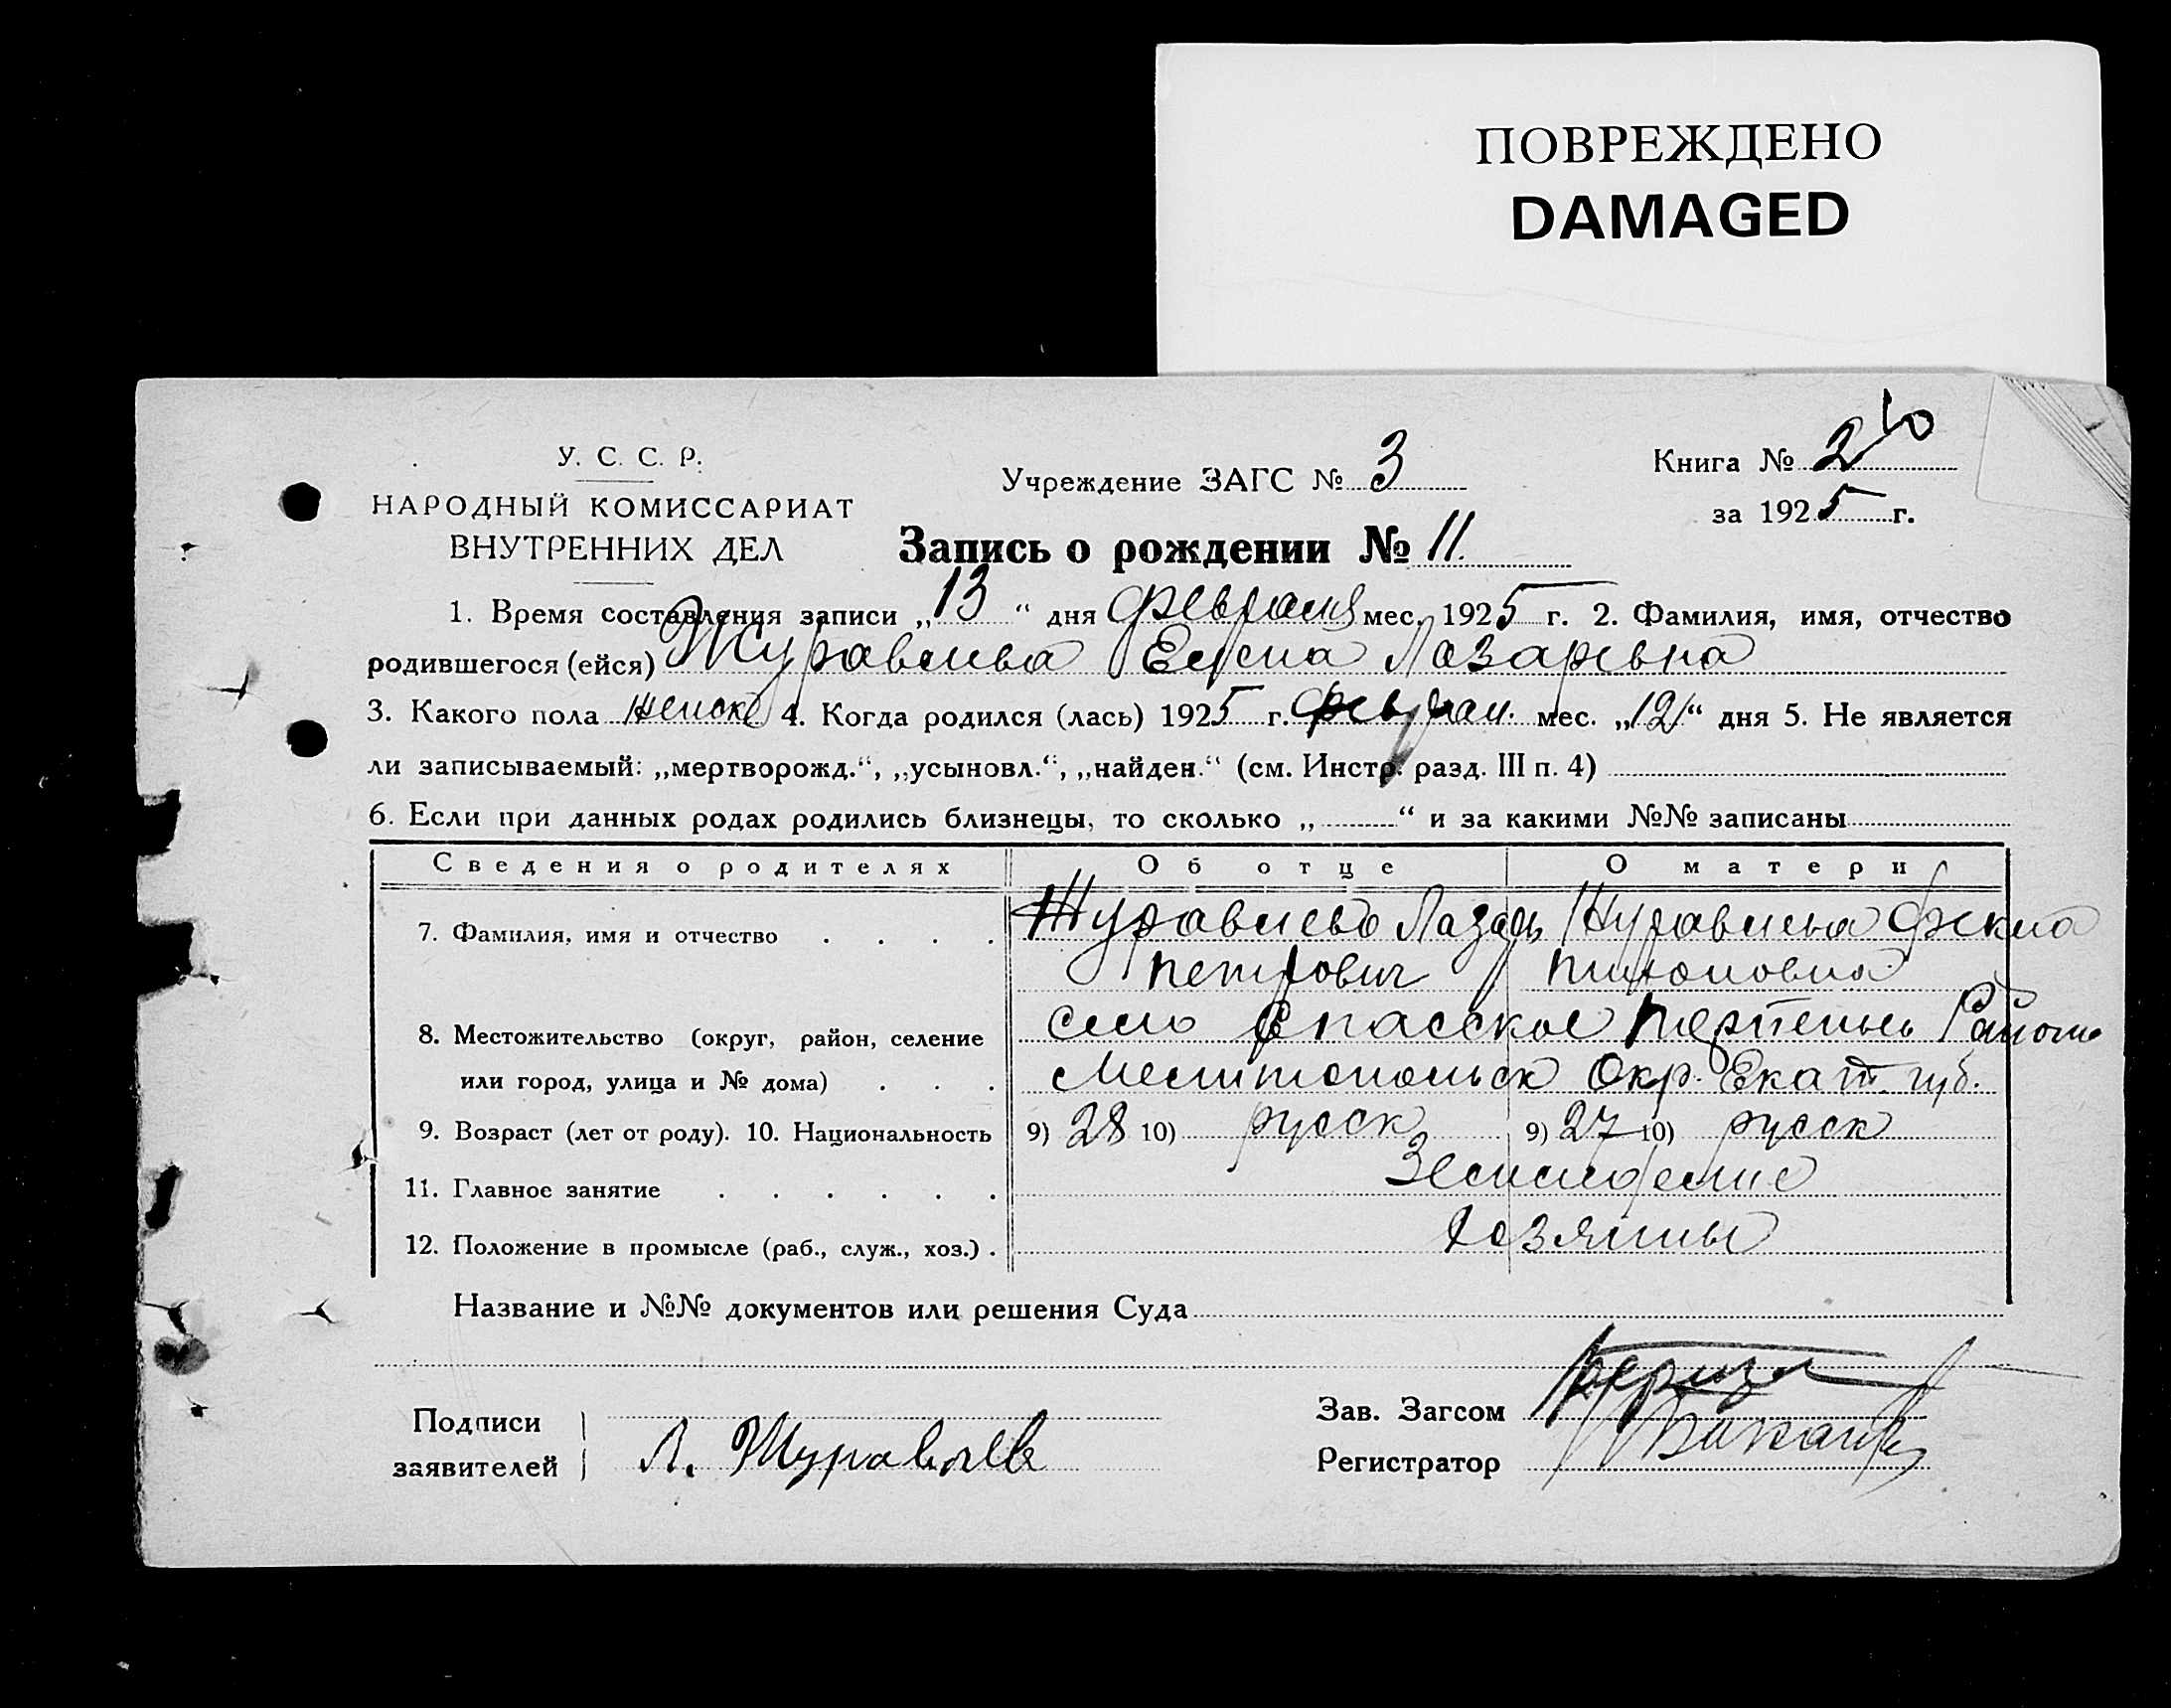 ПОВРЕЖДЕНО
DAMAGED
У. С. С. Р.
НАРОДНЫЙ КОМИССАРИАТ
ВНУТРЕННИХ ДЕЛ
Учреждение ЗАГС № 3
Книга № 2 10
за 1925 г.
Запись о рождении № 11.
1. Время составления записи „13“ дня февраля мес. 1925 г. 2. Фамилия, имя, отчество
родившегося (ейся) Журавлева Елена Лазаревна
3. Какого пола женск 4. Когда родился (лась) 1925 г. феврал. мес. „12“ дня 5. Не является
ли записываемый: „мертворожд.“, „усыновл.“, „найден.“ (см. Инстр. разд. III п. 4)
6. Если при данных родах родились близнецы, то сколько „ “ и за какими №№ записаны
Сведения о родителях Об отце О матери
7. Фамилия, имя и отчество . . . . Журавлев Лазарь Журавлева
Петрович
8. Местожительство (округ, район, селение село Спасское
или город, улица и № дома) . . . Мелитопольск Окр. Екат. губ.
9. Возраст (лет от роду). 10. Национальность 9) 28 10) русск 9) 27 10) русск
11. Главное занятие . . . . . . Земледелие
12. Положение в промысле (раб., служ., хоз.) . Хозяины
Название и №№ документов или решения Суда
Подписи
заявителей Л. Журавлев
Зав. Загсом
Регистратор